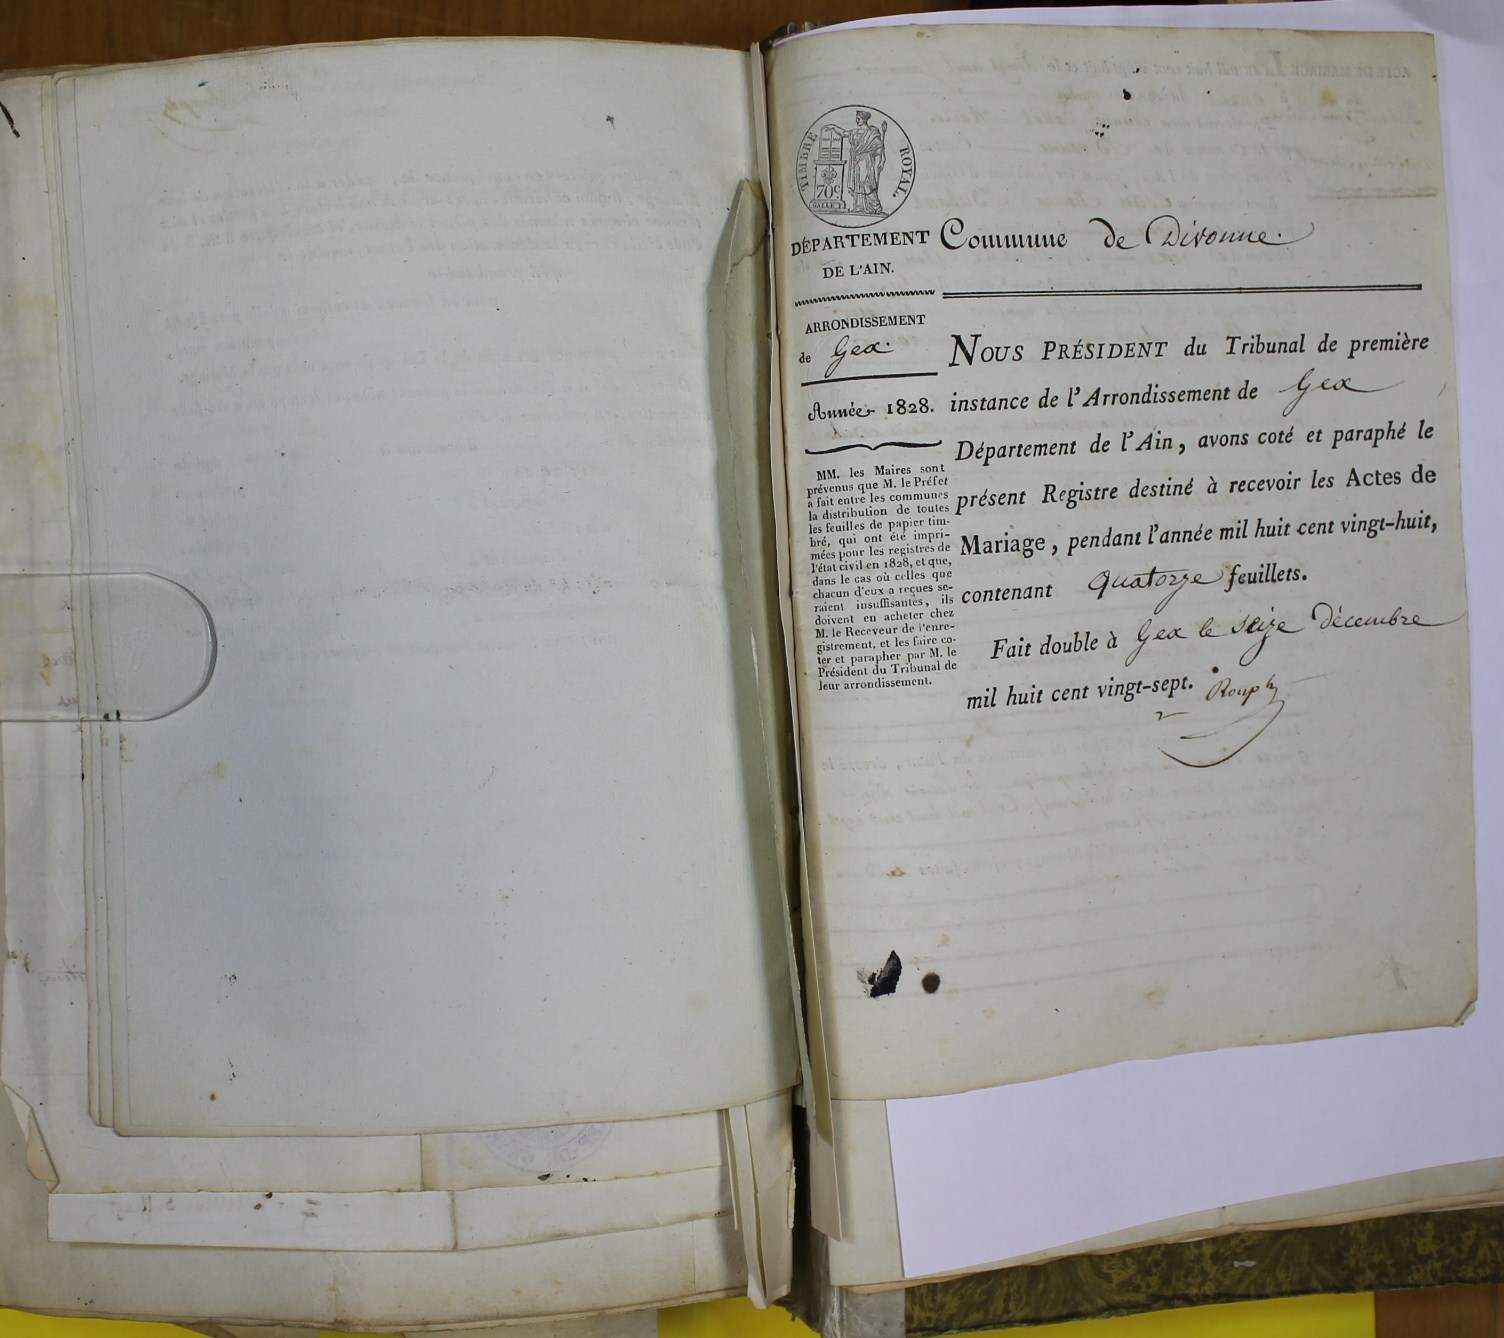 TIMBRE ROYAL.
70c
DÉPARTEMENT
DE L'AIN.
Commune de Divonne.
ARRONDISSEMENT
de Gex.
Année 1828.
MM. les Maires sont
prévenus que M. le Préfet
a fait entre les communes
la distribution de toutes
les feuilles de papier tim-
bré, qui ont été impri-
mées pour les registres de
l'état civil en 1828, et que,
dans le cas où celles que
chacun d'eux a reçues se-
raient insuffisantes, ils
doivent en acheter chez
M. le Receveur de l'enre-
gistrement, et les faire co-
ter et parapher par M. le
Président du Tribunal de
leur arrondissement.
NOUS PRÉSIDENT du Tribunal de première
instance de l'Arrondissement de Gex
Département de l'Ain, avons coté et paraphé le
présent Registre destiné à recevoir les Actes de
Mariage, pendant l'année mil huit cent vingt-huit,
contenant quatorze feuillets.
Fait double à Gex le seize décembre
mil huit cent vingt-sept.